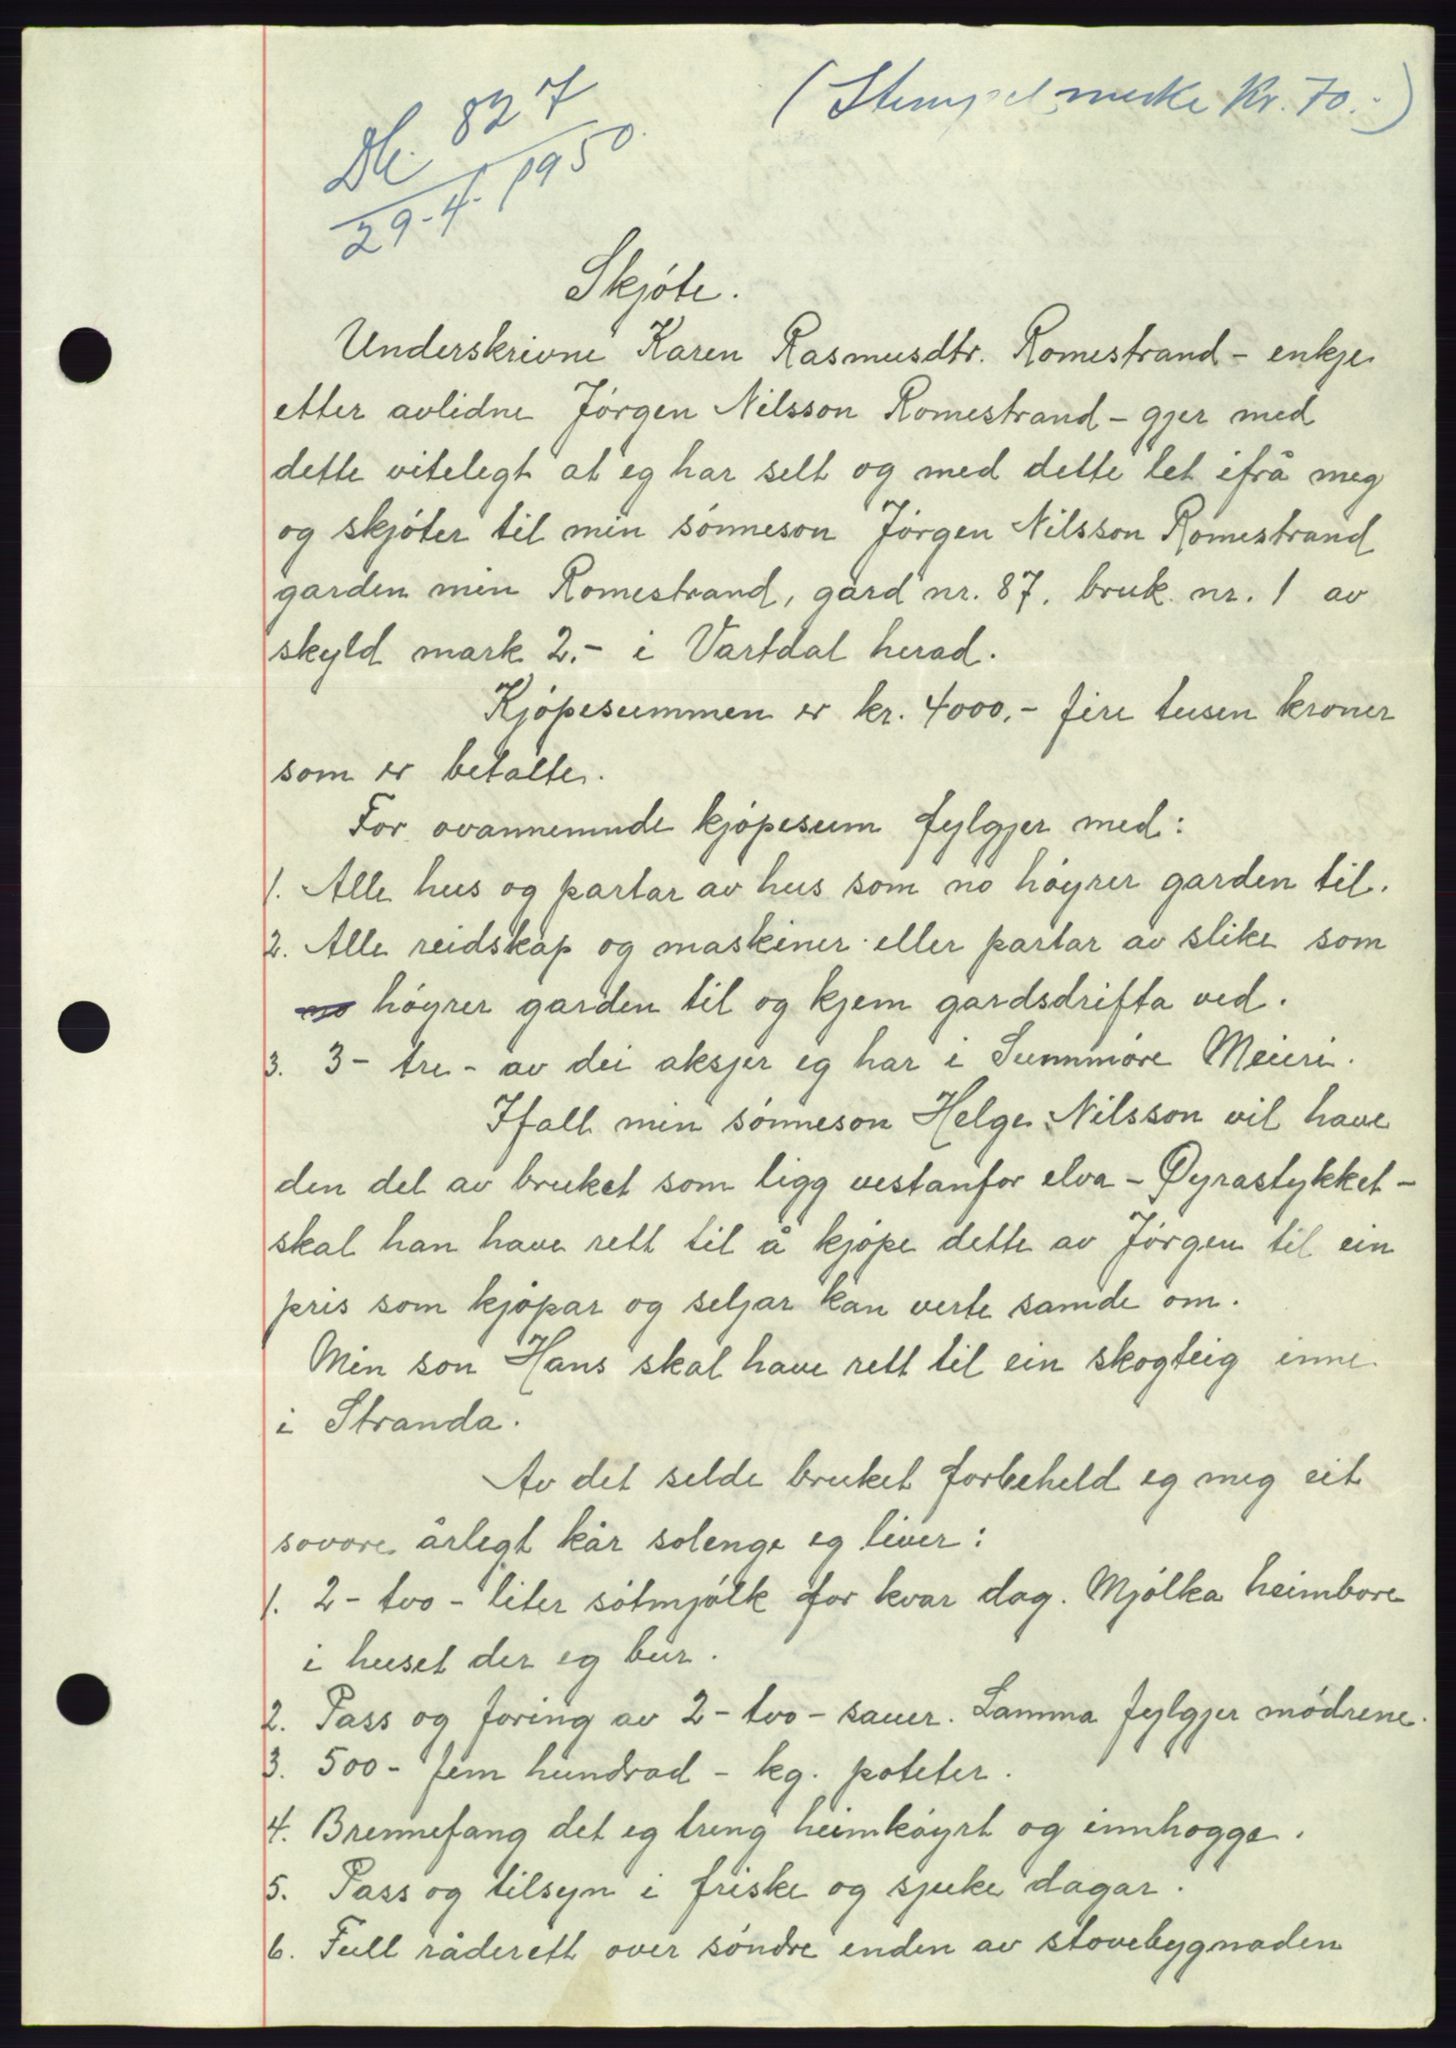 (Stempelmerke kr. 70.-)
Db. 827
29-4-1950
Skjóte.
Underskrivne Karen Rasmusdtr. Romestrand - enkje
etter avlidne Jórgen Nilsson Romestrand - gjer med
dette vitelegt at eg har selt og med dette let ifrå meg
og skjóter til min sónneson Jórgen Nilsson Romestrand
garden min Romestrand, gard nr. 87, bruk nr. 1 av
skyld mark 2.- i Vartdal herad.
Kjópesummen er kr. 4000.- fire tusen kroner
som er betalte.
For ovannemnde kjópesum fylgjer med:
1. Alle hus og partar av hus som no hóyrer garden til.
2. Alle reidskap og maskiner eller partar av slike som
no hóyrer garden til og kjem gardsdrifta ved.
3. 3 - tre - av dei aksjer eg har i Sunnmóre Meieri.
Ifall min sónneson Helge Nilsson vil have
den del av bruket som ligg vestanfor elva - Øyrastykket -
skal han have rett til å kjópe dette av Jórgen til ein
pris som kjópar og seljar kan verte samde om.
Min son Hans skal have rett til ein skogteig inne
i Stranda.
Av det selde bruket forbeheld eg meg eit
sovore årlegt kår solenge eg liver:
1. 2 - tvo - liter sótmjólk for kvar dag. Mjólka heimbore
i huset der eg bur.
2. Pass og foring av 2 - tvo - sauer. Lamma fylgjer módrene.
3. 500 - fem hundrad - kg. poteter.
4. Brennefang det eg treng heimkóyrt og innhogge.
5. Pass og tilsyn i friske og sjuke dagar.
6. Full råderett over sóndre enden av stovebygnaden